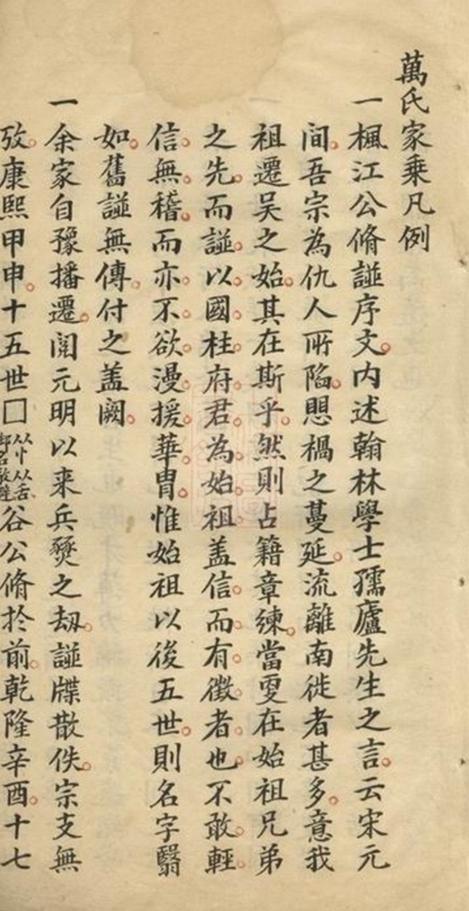 萬氏家乘凡例
一楓江公脩諩序文内述翰林學士孺廬先生之言云宋元
間吾宗為仇人所陷愳禍之蔓延流離南徙者甚多意我
祖遷吳之始其在斯乎然則占籍章練當更在始祖兄弟
之先而諩以國柱府君為始祖盖信而有徵者也不敢輕
信無稽而亦不欲漫援華胄惟始祖以後五世則名字翳
如舊諩無傳付之盖闕
一余家自豫播遷閲元明以来兵燹之刼諩牒散佚宗支無
攷康熙甲申十五世□从忄从舌谷公脩於前乾隆辛酉十七